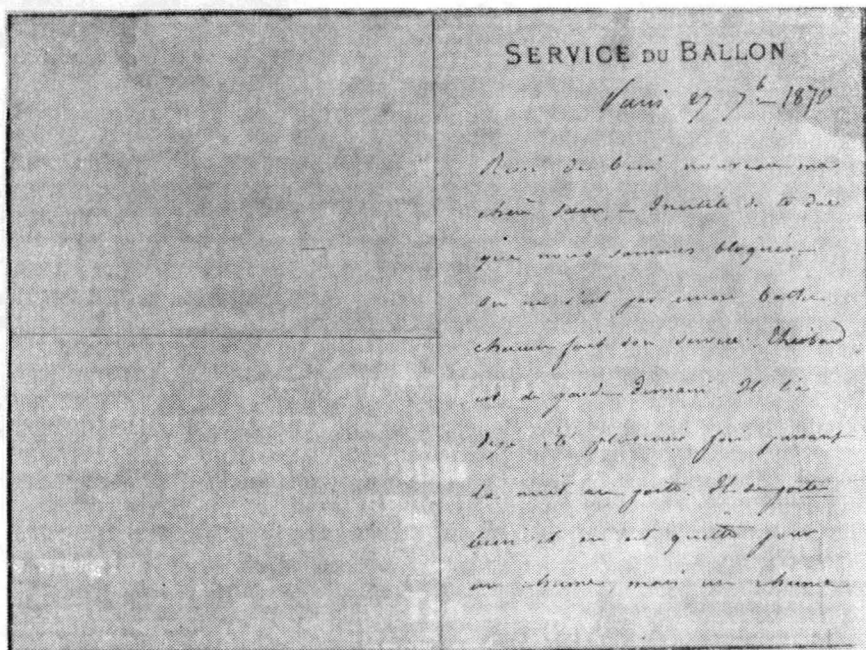 SERVICE DU BALLON
Paris 27 7b 1870
Rien de bien nouveau ma
chère sœur. – Inutile de te dire
que nous sommes bloqués. –
on ne s'est pas encore battu.
chacun fait son service.
est de garde demain. Il l'a
déja été plusieurs fois passant
la nuit au poste. Il se porte
bien et en est quitte pour
un rhume, mais un rhume